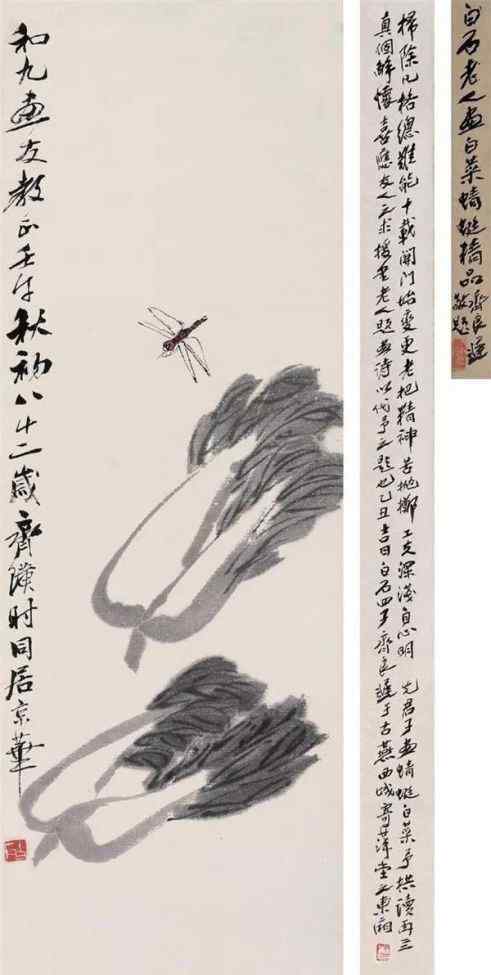 白石老人畫白菜蜻蜓精品齊良遲
敬題
掃除凡格總難能十載關門始變更老把精神苦拋擲工夫深淺自心明先君子畫蜻蜓白菜予拱讀再三
真個喜應友人之求援老人題畫詩以代予之題也乙丑吉日白石四子齊良遲于古燕西城寄萍堂之東廂
和九畫友教正壬午秋初八十二歲齊璜時同居京華